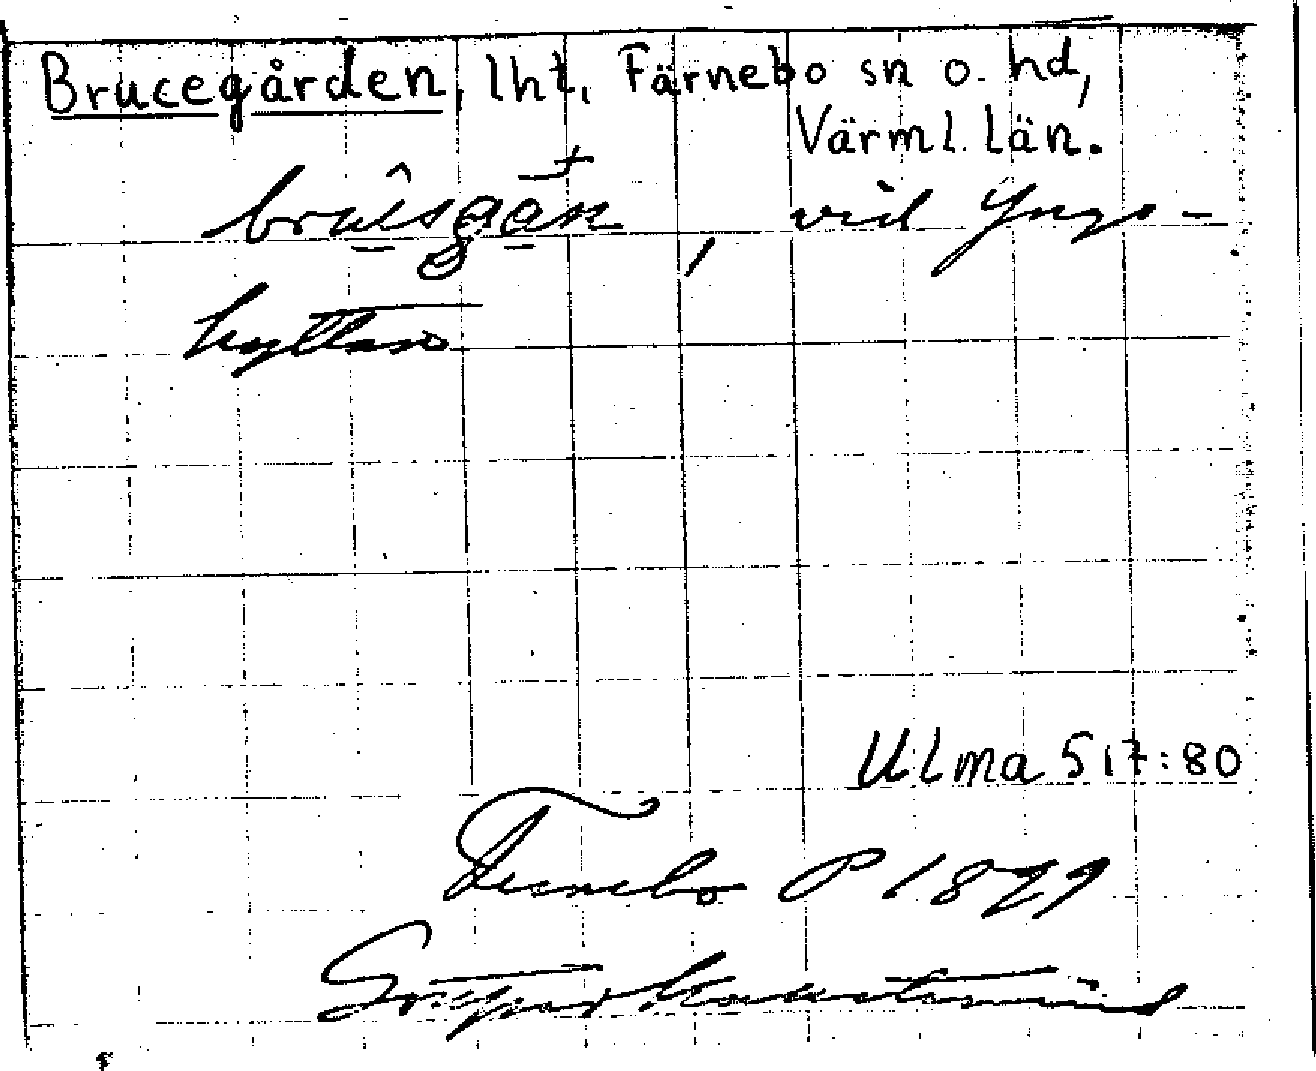 Brucegården, lht, Färnebo sn o. hd,
Värml. län.
brusgån, vid Yngs-
hyttan
Ulma 517:80
Fernebo P 1879